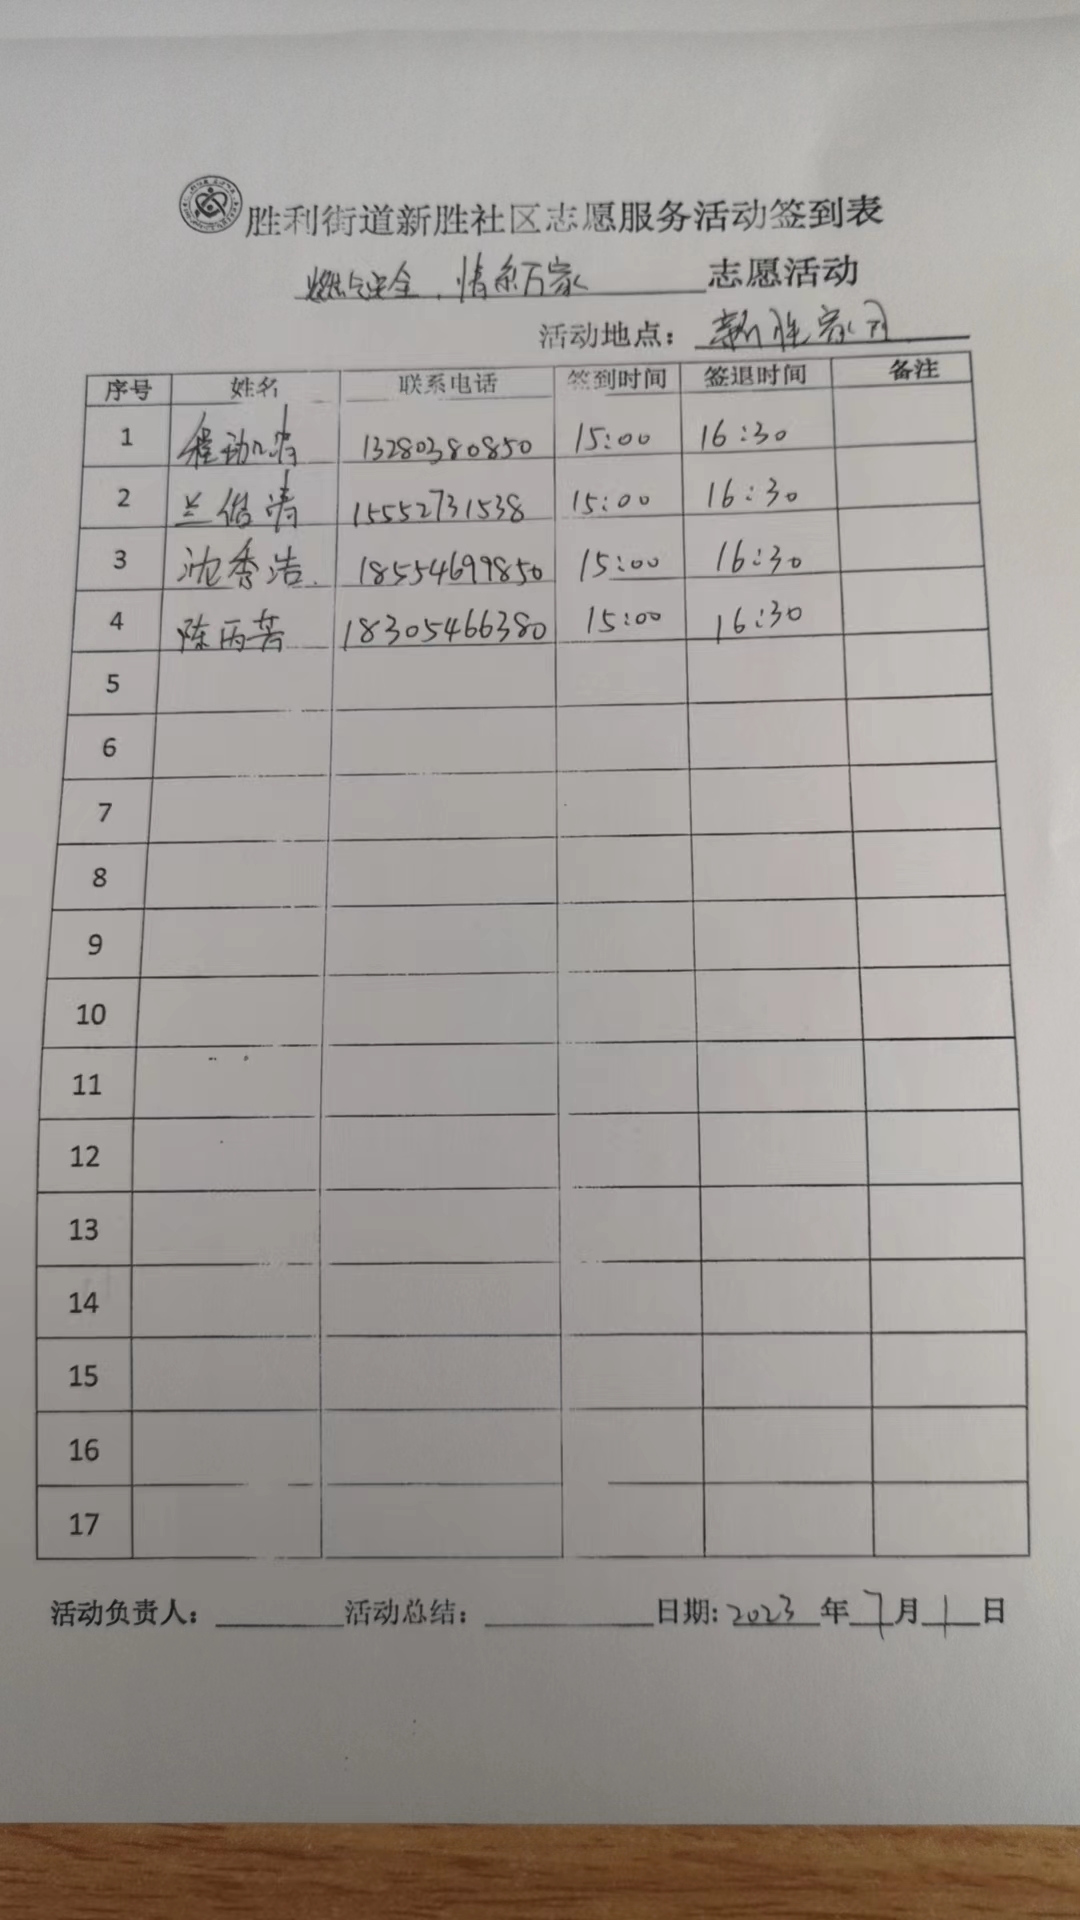 胜利街道新胜社区志愿服务活动签到表
燃气安全,情系万家 志愿活动
活动地点: 新胜家园
序号 姓名 联系电话 签到时间 签退时间 备注
1 程 13280380850 15:00 16:30
2 兰 清 15552731538 15:00 16:30
3 沈秀浩 18554699850 15:00 16:30
4 陈丙芳 18305466380 15:00 16:30
5
6
7
8
9
10
11
12
13
14
15
16
17
活动负责人: 活动总结: 日期: 2023 年 7 月 1 日